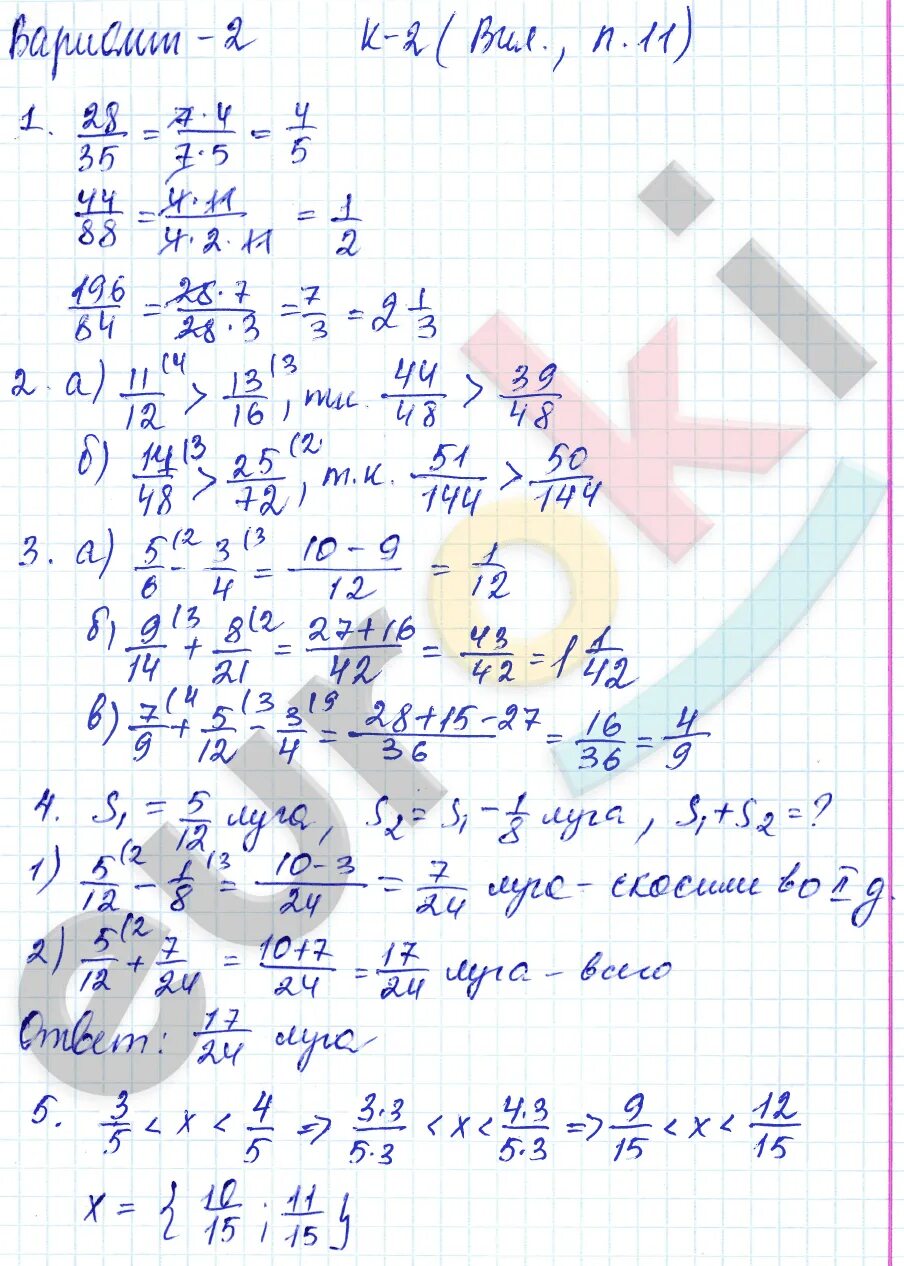 Вариант - 2 К-2 (Вил., п. 11)
1. 28/35 = 7·4/7·5 = 4/5
44/88 = 4·11/4·2·11 = 1/2
196/84 = 28·7/28·3 = 7/3 = 2 1/3
2. а) 11/12 (4 > 13/16 (3, т.к. 44/48 > 39/48
б) 17/48 (3 > 25/72 (2, т.к. 51/144 > 50/144
3. а) 5/6 (2 - 3/4 (3 = 10-9/12 = 1/12
б) 9/14 (3 + 8/21 (2 = 27+16/42 = 43/42 = 1 1/42
в) 7/9 (4 + 5/12 (3 - 3/4 (9 = 28+15-27/36 = 16/36 = 4/9
4. S₁ = 5/12 луга, S₂ = S₁ - 1/8 луга, S₁ + S₂ = ?
1) 5/12 (2 - 1/8 (3 = 10-3/24 = 7/24 луга - скосили во II д.
2) 5/12 (2 + 7/24 = 10+7/24 = 17/24 луга - всего
Ответ: 17/24 луга
5. 3/5 < x < 4/5 => 3·3/5·3 < x < 4·3/5·3 => 9/15 < x < 12/15
x = { 10/15 ; 11/15 }
euroki